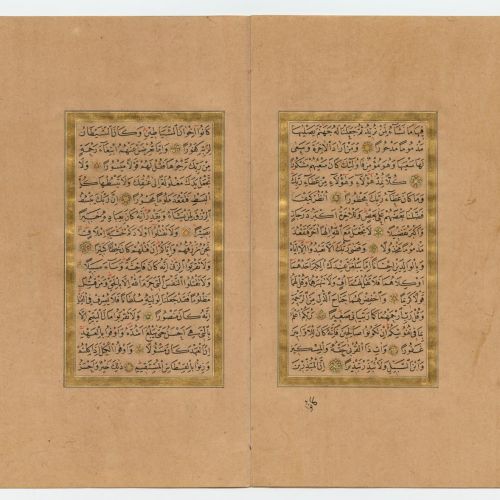 فِيهَا مَا نَشَاءُ لِمَنْ نُرِيدُ ثُمَّ جَعَلْنَا لَهُ جَهَنَّمَ يَصْلٰيهَا
مَذْمُومًا مَدْحُورًا وَمَنْ اَرَادَ الْاٰخِرَةَ وَسَعٰى
لَهَا سَعْيَهَا وَهُوَ مُؤْمِنٌ فَاُولٰئِكَ كَانَ سَعْيُهُمْ مَشْكُورًا
كُلًّا نُمِدُّ هٰؤُلَاءِ وَهٰؤُلَاءِ مِنْ عَطَاءِ رَبِّكَ
وَمَا كَانَ عَطَاءُ رَبِّكَ مَحْظُورًا اُنْظُرْ كَيْفَ
فَضَّلْنَا بَعْضَهُمْ عَلٰى بَعْضٍ وَلَلْاٰخِرَةُ اَكْبَرُ دَرَجَاتٍ
وَاَكْبَرُ تَفْضِيلًا لَا تَجْعَلْ مَعَ اللّٰهِ اِلٰهًا اٰخَرَ فَتَقْعُدَ
مَذْمُومًا مَخْذُولًا وَقَضٰى رَبُّكَ اَلَّا تَعْبُدُوا اِلَّا اِيَّاهُ
وَبِالْوَالِدَيْنِ اِحْسَانًا اِمَّا يَبْلُغَنَّ عِنْدَكَ الْكِبَرَ اَحَدُهُمَا
اَوْ كِلَاهُمَا فَلَا تَقُلْ لَهُمَا اُفٍّ وَلَا تَنْهَرْهُمَا وَقُلْ لَهُمَا
قَوْلًا كَرِيمًا وَاخْفِضْ لَهُمَا جَنَاحَ الذُّلِّ مِنَ الرَّحْمَةِ
وَقُلْ رَبِّ ارْحَمْهُمَا كَمَا رَبَّيَانِي صَغِيرًا رَبُّكُمْ اَعْلَمُ
بِمَا فِي نُفُوسِكُمْ اِنْ تَكُونُوا صَالِحِينَ فَاِنَّهُ كَانَ لِلْاَوَّابِينَ
غَفُورًا وَاٰتِ ذَا الْقُرْبٰى حَقَّهُ وَالْمِسْكِينَ
وَابْنَ السَّبِيلِ وَلَا تُبَذِّرْ تَبْذِيرًا اِنَّ الْمُبَذِّرِينَ
كَانُوا اِخْوَانَ الشَّيَاطِينِ وَكَانَ الشَّيْطَانُ
لِرَبِّهِ كَفُورًا وَاِمَّا تُعْرِضَنَّ عَنْهُمُ ابْتِغَاءَ رَحْمَةٍ
مِنْ رَبِّكَ تَرْجُوهَا فَقُلْ لَهُمْ قَوْلًا مَيْسُورًا وَلَا
تَجْعَلْ يَدَكَ مَغْلُولَةً اِلٰى عُنُقِكَ وَلَا تَبْسُطْهَا كُلَّ
الْبَسْطِ فَتَقْعُدَ مَلُومًا مَحْسُورًا اِنَّ رَبَّكَ يَبْسُطُ
الرِّزْقَ لِمَنْ يَشَاءُ وَيَقْدِرُ اِنَّهُ كَانَ بِعِبَادِهِ خَبِيرًا
بَصِيرًا وَلَا تَقْتُلُوا اَوْلَادَكُمْ خَشْيَةَ اِمْلَاقٍ
نَحْنُ نَرْزُقُهُمْ وَاِيَّاكُمْ اِنَّ قَتْلَهُمْ كَانَ خِطْئًا كَبِيرًا
وَلَا تَقْرَبُوا الزِّنٰى اِنَّهُ كَانَ فَاحِشَةً وَسَاءَ سَبِيلًا
وَلَا تَقْتُلُوا النَّفْسَ الَّتِي حَرَّمَ اللّٰهُ اِلَّا بِالْحَقِّ وَمَنْ قُتِلَ
مَظْلُومًا فَقَدْ جَعَلْنَا لِوَلِيِّهِ سُلْطَانًا فَلَا يُسْرِفْ فِي الْقَتْلِ
اِنَّهُ كَانَ مَنْصُورًا وَلَا تَقْرَبُوا مَالَ الْيَتِيمِ اِلَّا
بِالَّتِي هِيَ اَحْسَنُ حَتّٰى يَبْلُغَ اَشُدَّهُ وَاَوْفُوا بِالْعَهْدِ
اِنَّ الْعَهْدَ كَانَ مَسْؤُلًا وَاَوْفُوا الْكَيْلَ اِذَا كِلْتُمْ
وَزِنُوا بِالْقِسْطَاسِ الْمُسْتَقِيمِ ذٰلِكَ خَيْرٌ وَاَحْسَنُ